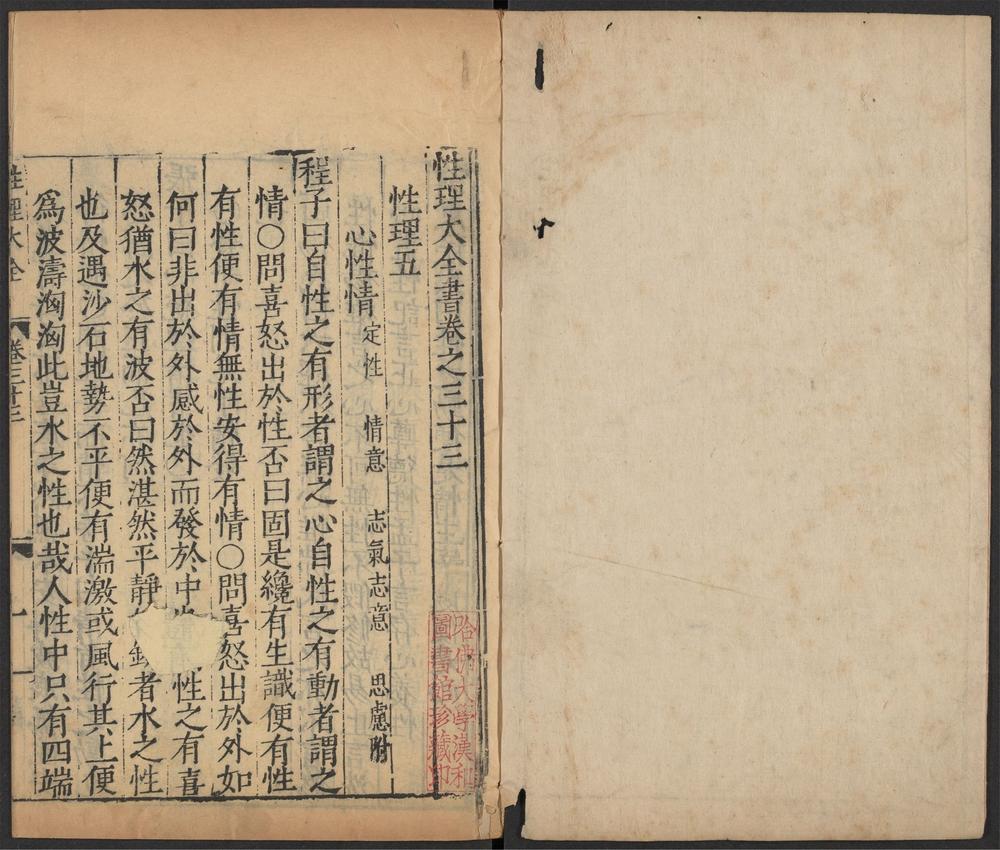 性理大全書卷之三十三
性理五
心性情 定性 情意 志氣志意 思慮附
程子曰自性之有形者謂之心自性之有動者謂之
情○問喜怒出於性否曰固是纔有生識便有性
有性便有情無性安得有情○問喜怒出於外如
何曰非出於外感於外而發於中 性之有喜
怒猶水之有波否曰然湛然平靜 者水之性
也及遇沙石地勢不平便有湍激或風行其上便
為波濤洶洶此豈水之性也哉人性中只有四端
性理大全 卷三十三 一
哈佛大學漢和
圖書館珍藏印